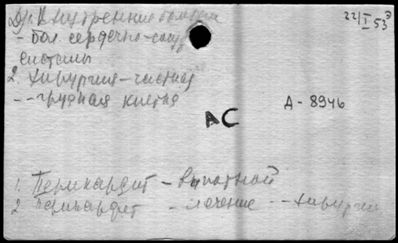 22/I 53
Внутренние болезни
- бол. сердечно-сосуд
системы
2. Хирургия - частная
-- грудная клетка
Д - 8946
АС
1. Перикардит - выпотной
2 Перикардит - лечение -- хирургия